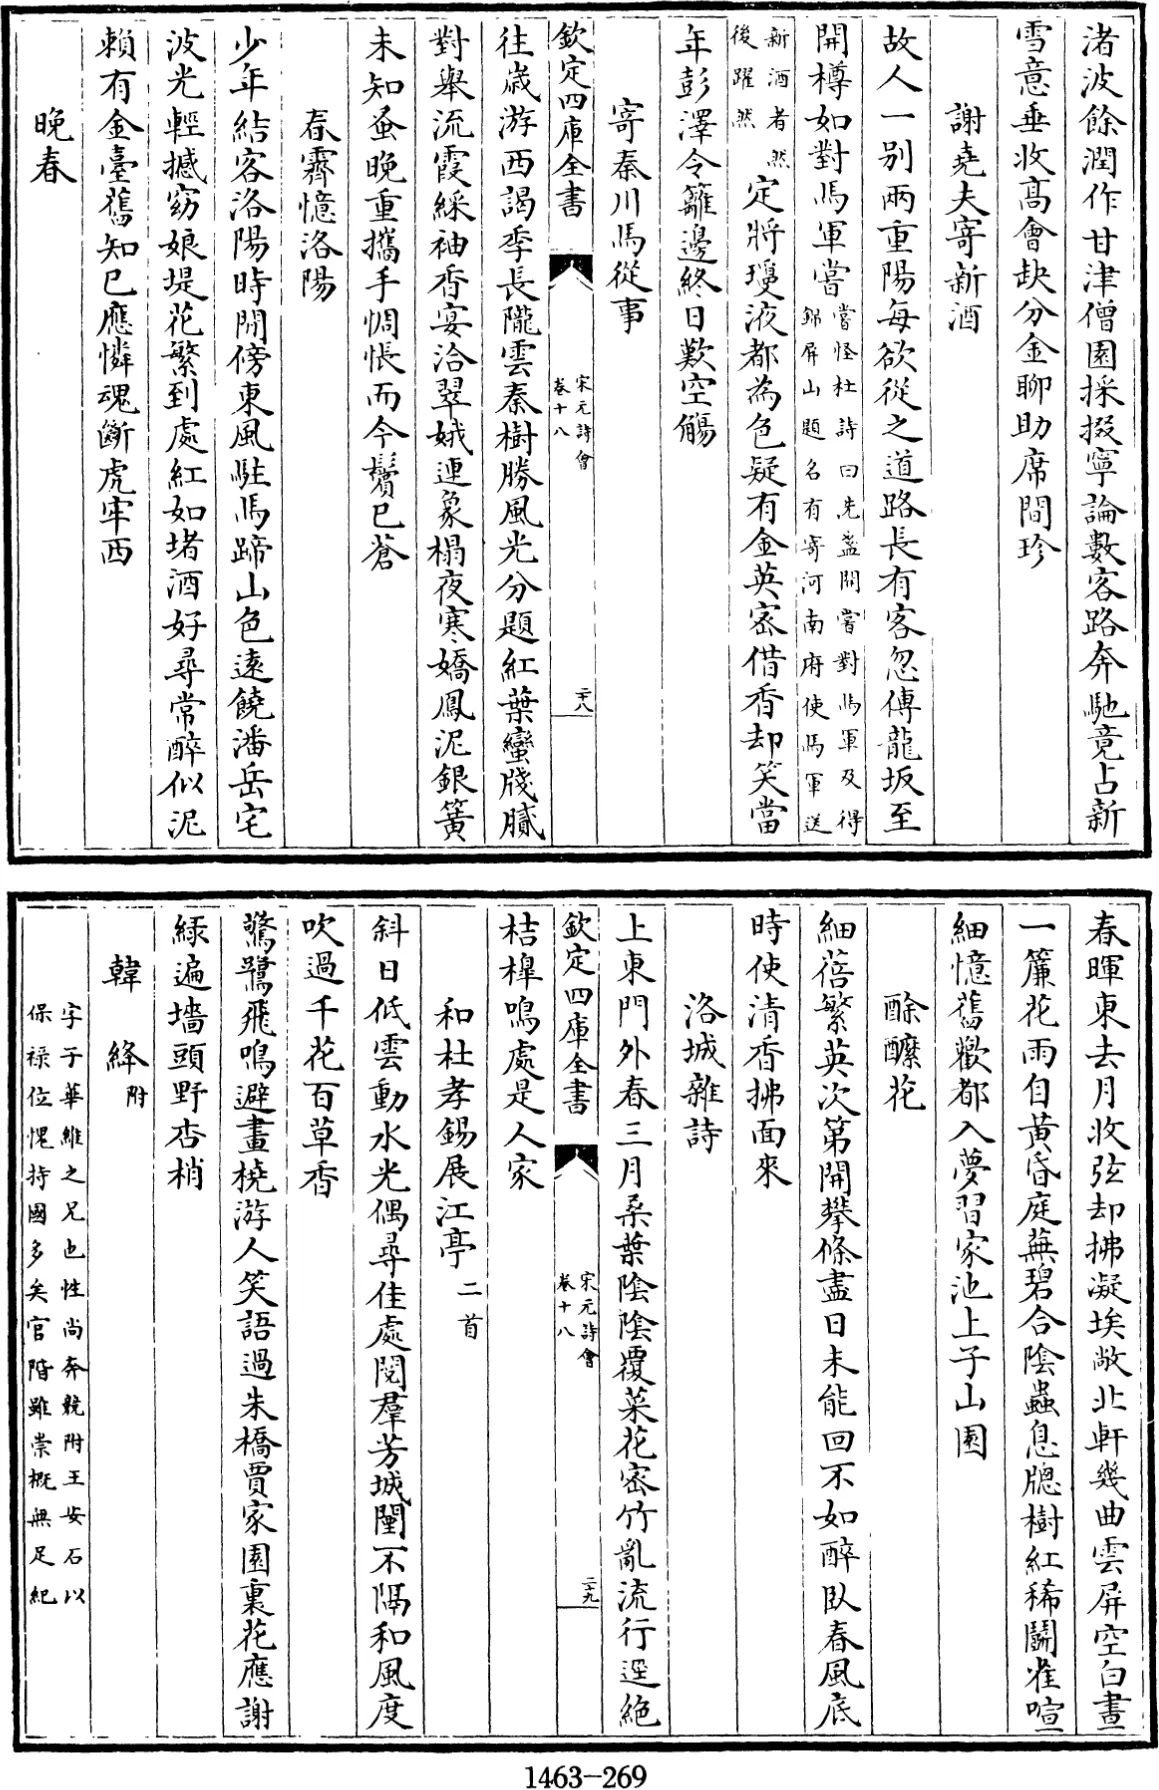 渚波餘潤作甘津僧園採掇寧論數客路奔馳竟占新
雪意垂收高會缺分金聊助席間珍
謝堯夫寄新酒
故人一別兩重陽每欲從之道路長有客忽傳龍坂至
開樽如對馬軍嘗
嘗怪杜詩曰先盞開嘗對馬軍及得
錦屏山題名有寄河南府使馬軍送
新酒者然
後躍然
定將瓊液都為色疑有金英密借香却笑當
年彭澤令籬邊終日歎空觴
寄秦川馬從事
欽定四庫全書
宋元詩會
卷十八
二十八
往歲游西謁季長隴雲秦樹勝風光分題紅葉蠻牋膩
對舉流霞綵袖香宴洽翠娥連象榻夜寒嬌鳳泥銀簧
未知蚤晚重攜手惆悵而今鬢已蒼
春霽憶洛陽
少年結客洛陽時閒傍東風駐馬蹄山色遠饒潘岳宅
波光輕撼窈娘堤花繁到處紅如堵酒好尋常醉似泥
賴有金臺舊知已應憐魂斷虎牢西
晚春
春暉東去月收弦却拂凝埃敞北軒幾曲雲屏空白晝
一簾花雨自黃昏庭蕪碧合陰蟲息牕樹紅稀鬬雀喧
細憶舊歡都入夢習家池上子山園
酴醿花
細蓓繁英次第開攀條盡日未能回不如醉臥春風底
時使清香拂面來
洛城雜詩
上東門外春三月桑葉陰陰覆菜花密竹亂流行逕絶
欽定四庫全書
宋元詩會
卷十八
二十九
桔橰鳴處是人家
和杜孝錫展江亭二首
斜日低雲動水光偶尋佳處閱羣芳城闉不隔和風度
吹過千花百草香
驚鷺飛鳴避畫橈游人笑語過朱橋賈家園裏花應謝
綠遍墻頭野杏梢
韓絳附
字子華維之兄也性尚奔競附王安石以
保祿位愧持國多矣官階雖崇概無足紀
1463—269